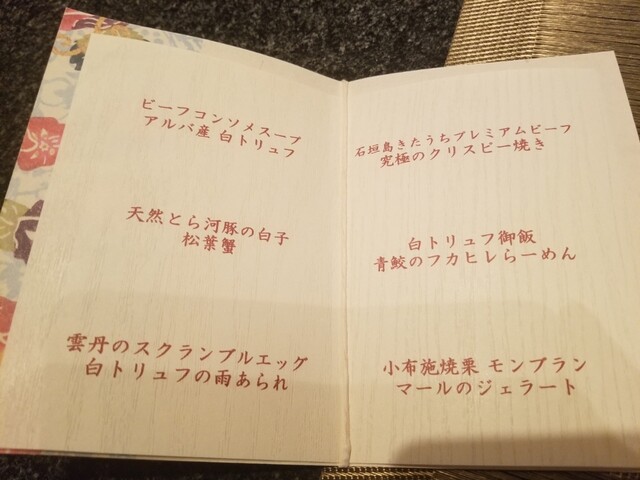 ビーフコンソメスープ
アルバ産 白トリュフ
天然とら河豚の白子
松葉蟹
雲丹のスクランブルエッグ
白トリュフの雨あられ
石垣島きたうちプレミアムビーフ
究極のクリスピー焼き
白トリュフ御飯
青鮫のフカヒレらーめん
小布施焼栗 モンブラン
マールのジェラート